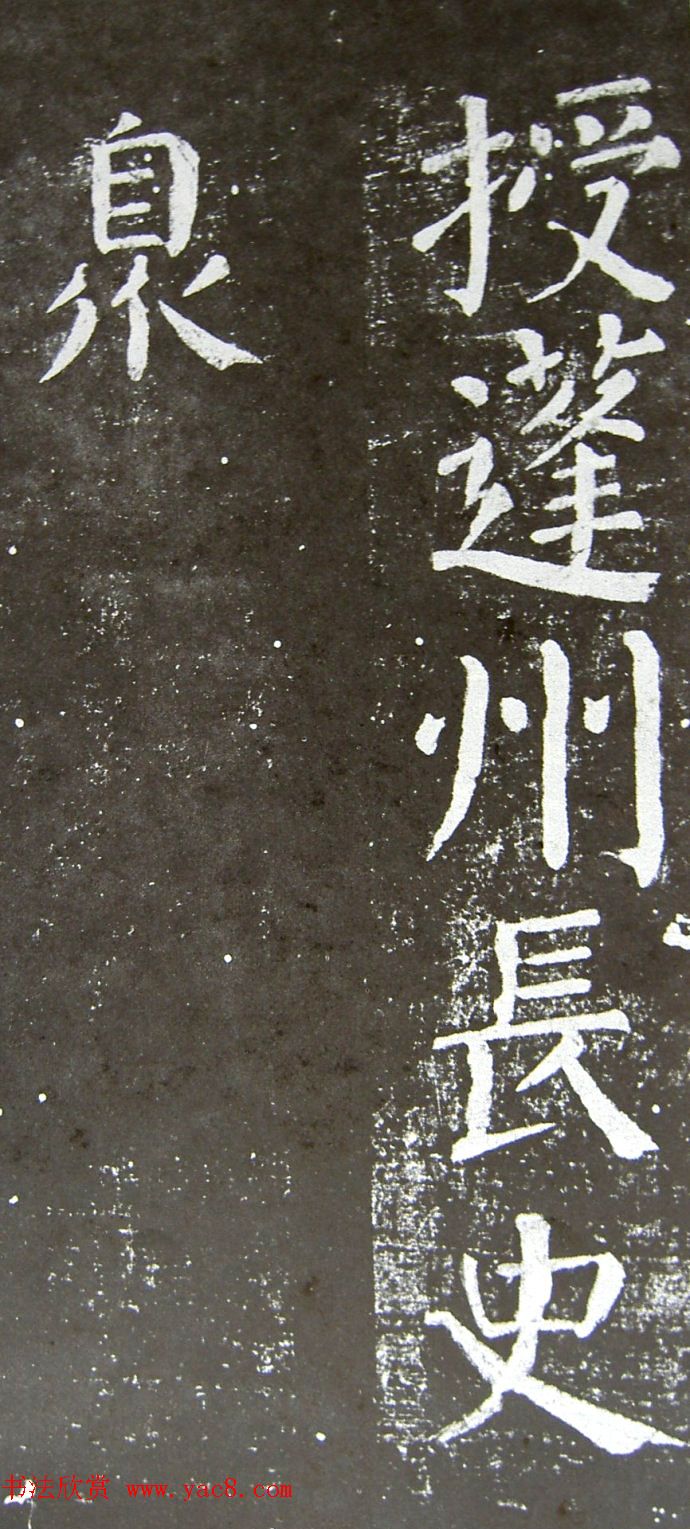 授蓬州長史
臮
书法欣赏 www.yac8.com